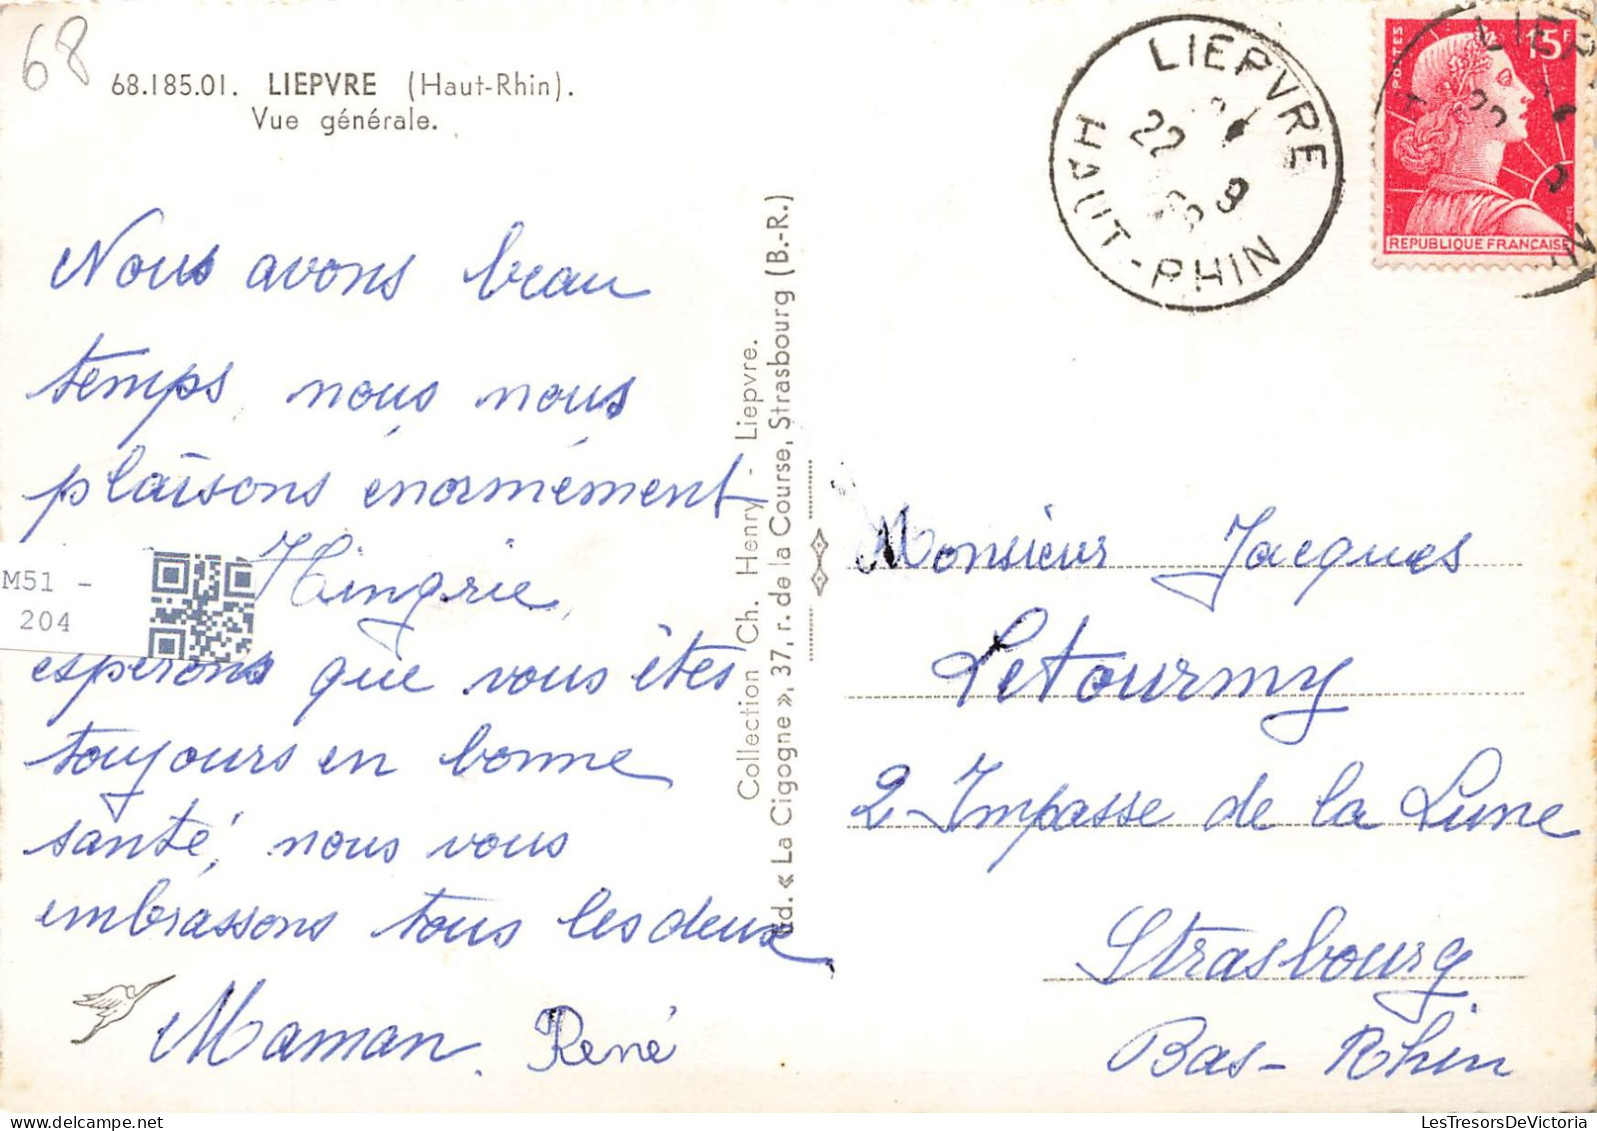 68
68.185.01. LIEPVRE (Haut-Rhin).
Vue générale.
LIEPVRE
22
HAUT-RHIN
POSTES
15F
REPUBLIQUE FRANCAISE
LIEP
Nous avons beau
temps, nous nous
plaisons énormément
Hingrie,
M51 -
204
esperons que vous êtes
toujours en bonne
santé, nous vous
embrassons tous les deux
Maman. René
Collection Ch. Henry - Liepvre.
Ed. « La Cigogne », 37, r. de la Course, Strasbourg (B.-R.)
Monsieur Jacques
Letourmy
2 Impasse de la Lune
Strasbourg
Bas-Rhin
LesTresorsDeVictoria.com